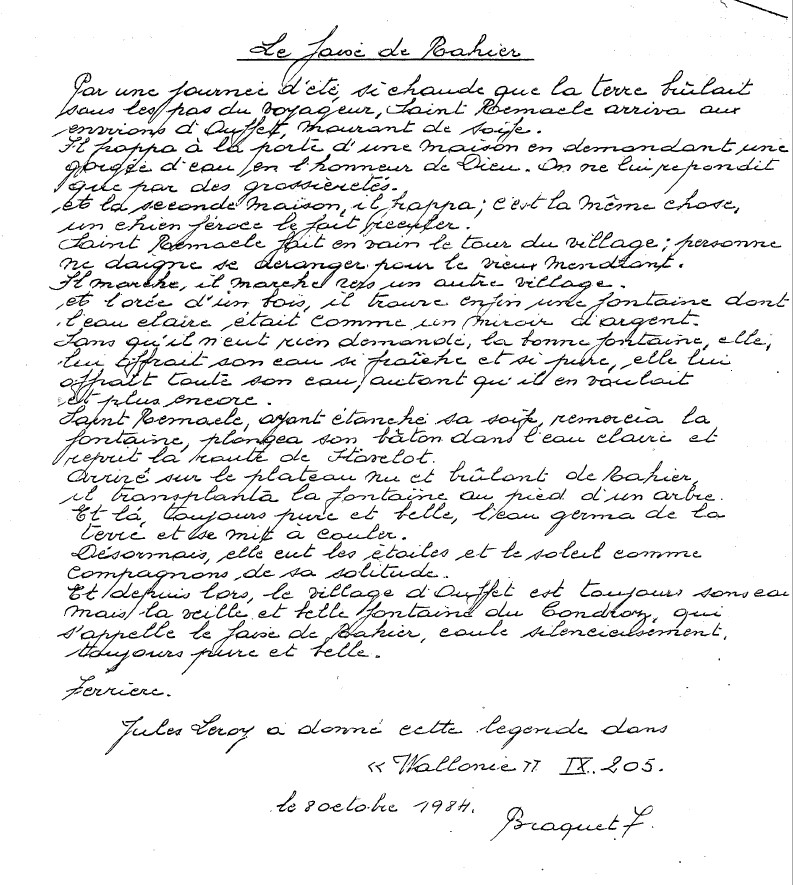 Le Fawé de Rahier
Par une journée d'été, si chaude que la terre brûlait
sous les pas du voyageur, Saint Remacle arriva aux
environs d'Ouffet, mourant de soife.
Il frappa à la porte d'une maison en demandant une
gorgée d'eau, en l'honneur de Dieu. On ne lui repondit
que par des grossièretés.
et la seconde maison, il happa; c'est la même chose,
un chien féroce le fait reculer.
Saint Remacle fait en vain le tour du village; personne
ne daigne se déranger pour le vieux mendiant.
Il marche, il marche vers un autre village.
et l'orée d'un bois, il trouve enfin une fontaine dont
l'eau claire était comme un miroir d'argent.
Sans qu'il n'eut rien demandé, la bonne fontaine, elle,
lui offrait son eau si fraîche et si pure, elle lui
offrait toute son eau, autant qu'il en voulait
et plus encore.
Saint Remacle, ayant étanché sa soife, remercia la
fontaine, plongea son bâton dans l'eau claire et
reprit la route de Stavelot.
Arrivé sur le plateau nu et brûlant de Rahier,
il transplanta la fontaine au pied d'un arbre.
Et là, toujours pure et belle, l'eau germa de la
terre et se mit à couler.
Désormais, elle eut les étoiles et le soleil comme
compagnons de sa solitude.
Et depuis lors, le village d'Ouffet est toujours sans eau
mais la veille et belle fontaine du Condroz, qui
s'appelle le de Rahier, coule silencieusement,
toujours pure et belle.
Ferrière.
Jules Leroy a donné cette legende dans
« Wallonie » IX. 205.
le 8 octobre 1984.
Braquet F.